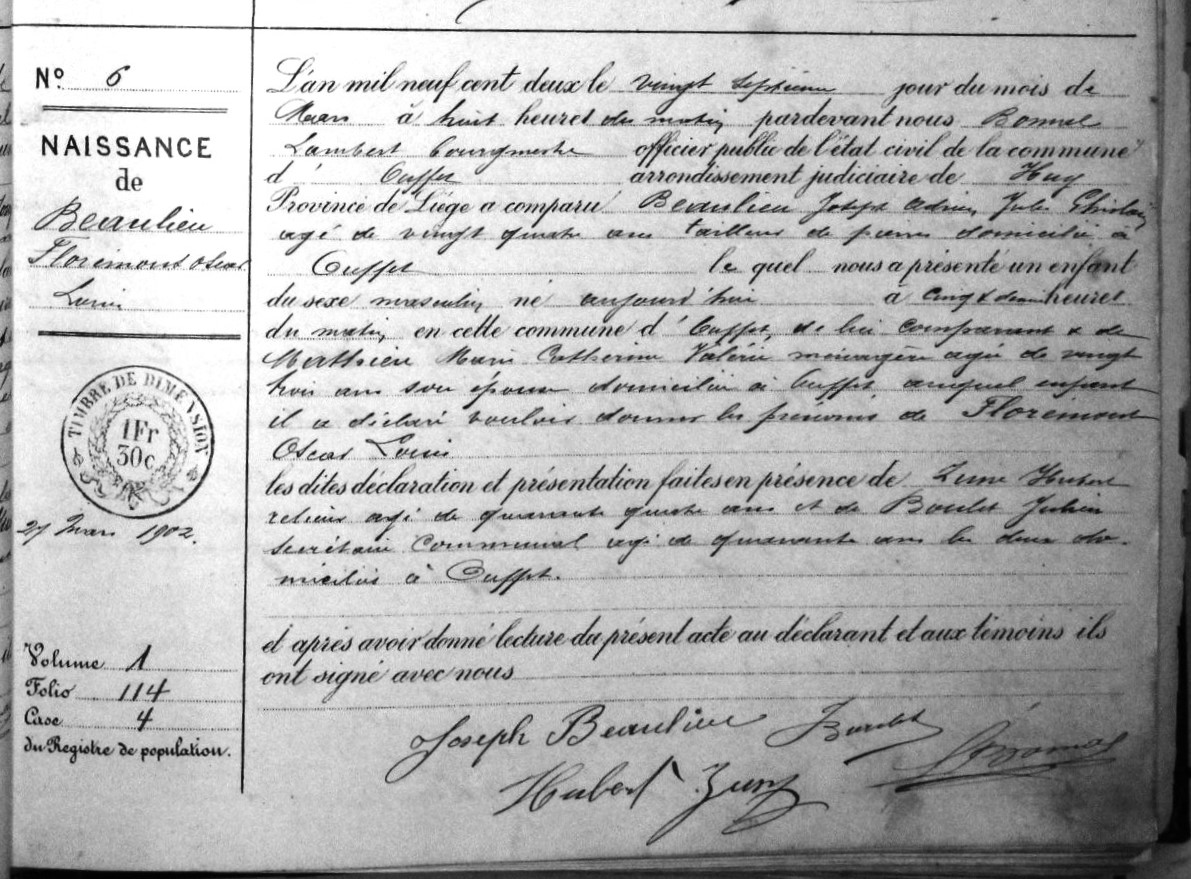 Nº 6
NAISSANCE
de
Beaulieu
Florémont Oscar
Louis
TIMBRE DE DIMENSION
1Fr
30c
27 Mars 1902.
Volume 1
Folio 114
Case 4
du Registre de population.
L'an mil neuf cent deux le vingt septième jour du mois de
Mars à huit heures du matin pardevant nous Bonmal
Lambert bourgmestre officier public de l'état civil de la commune
d' Ouffet arrondissement judiciaire de Huy
Province de Liège a comparu Beaulieu Joseph Adrien Jules Ghislain
agé de vingt quatre ans tailleur de pierres domicilié à
Ouffet lequel nous a présenté un enfant
du sexe masculin né aujourd'hui à cinq & demi heures
du matin en cette commune d'Ouffet, de lui comparant & de
Mathieu Marie Catherine Valérie ménagère agée de vingt
trois ans son épouse domiciliée à Ouffet auquel enfant
il a déclaré vouloir donner les prénoms de Florémont
Oscar Louis
les dites déclaration et présentation faites en présence de Hubert
agé de quarante quatre ans et de Boulet Julien
secrétaire communal agé de quarante ans les deux do-
miciliés à Ouffet.
et après avoir donné lecture du présent acte au déclarant et aux témoins ils
ont signé avec nous
Joseph Beaulieu JBoulet
LBonmal
Hubert